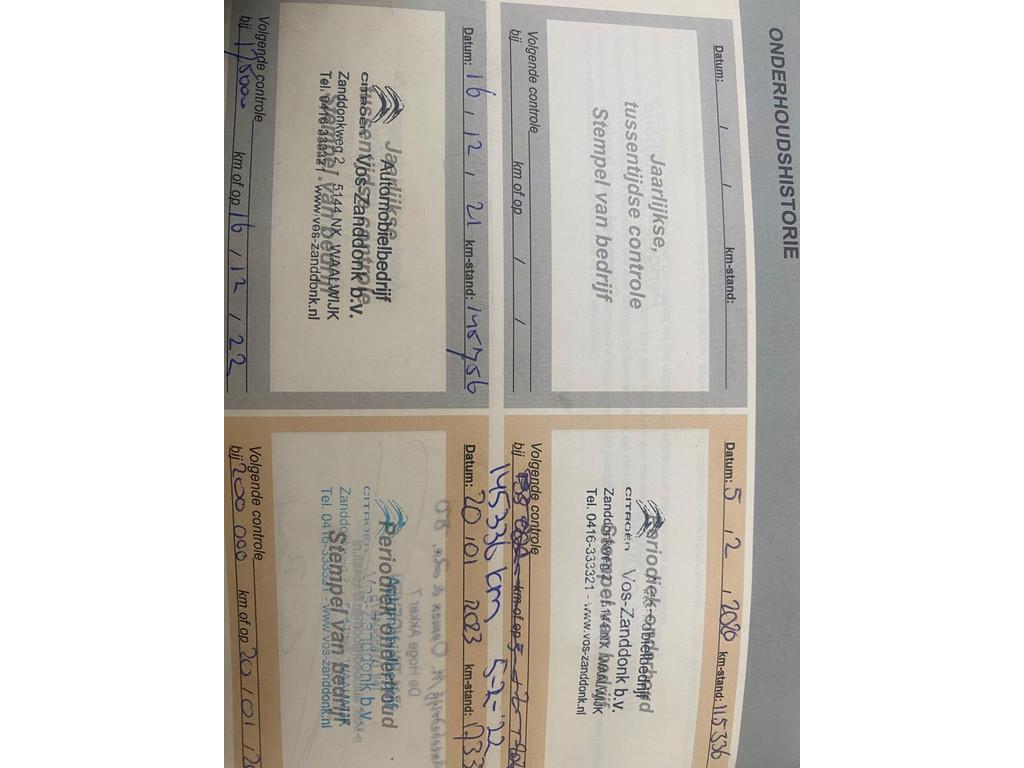 ONDERHOUDSHISTORIE
Datum: / / km-stand:
Jaarlijkse,
tussentijdse controle
Stempel van bedrijf
Volgende controle
bij km of op / /
Datum: 5 / 2 / 2020 km-stand: 115336
Periodiek onderhoud
Stempel van bedrijf
Automobielbedrijf
CITROËN Vos-Zanddonk b.v.
Zanddonkweg 2 5144 NX WAALWIJK
Tel. 0416-333321 - www.vos-zanddonk.nl
Volgende controle
bij km of op
145336 km 5-2-'22
Datum: 16 / 12 / 21 km-stand: 145756
Jaarlijkse,
tussentijdse controle
Stempel van bedrijf
Automobielbedrijf
CITROËN Vos-Zanddonk b.v.
Zanddonkweg 2 5144 NX WAALWIJK
Tel. 0416-333321 - www.vos-zanddonk.nl
Volgende controle
bij 175000 km of op 16 / 12 / 22
Datum: 20 / 01 / 2023 km-stand: 1733
Periodiek onderhoud
Stempel van bedrijf
Automobielbedrijf
CITROËN Vos-Zanddonk b.v.
Tel. 0416-333321 - www.vos-zanddonk.nl
Volgende controle
bij 200 000 km of op 20 / 01 / 20